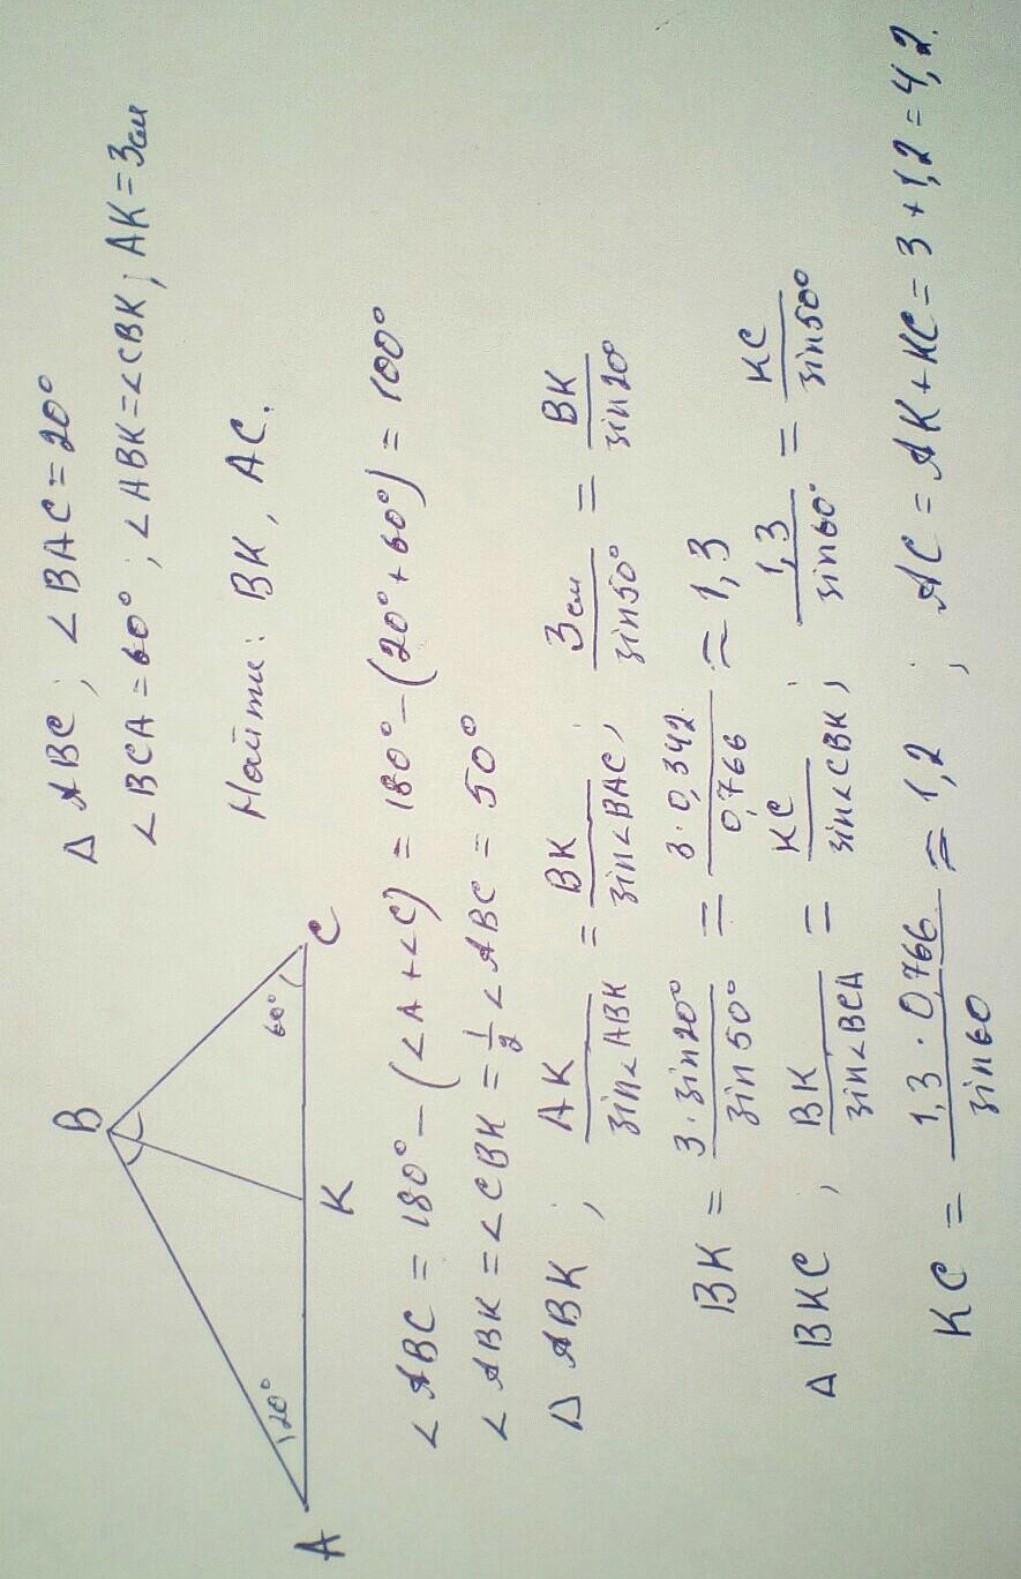 Δ ABC; ∠BAC = 20°
∠BCA = 60°; ∠ABK = ∠CBK; AK = 3см
Найти: BK, AC.
B
20°
60°
A
K
C
∠ABC = 180° - (∠A + ∠C) = 180° - (20° + 60°) = 100°
∠ABK = ∠CBK = 1/2 ∠ABC = 50°
Δ ABK; AK/sin∠ABK = BK/sin∠BAC; 3см/sin50° = BK/sin20°
BK = 3·sin20°/sin50° = 3·0,342/0,766 ≈ 1,3
Δ BKC, BK/sin∠BCA = KC/sin∠CBK; 1,3/sin60° = KC/sin50°
KC = 1,3·0,766/sin60 ≈ 1,2; AC = AK + KC = 3 + 1,2 = 4,2.